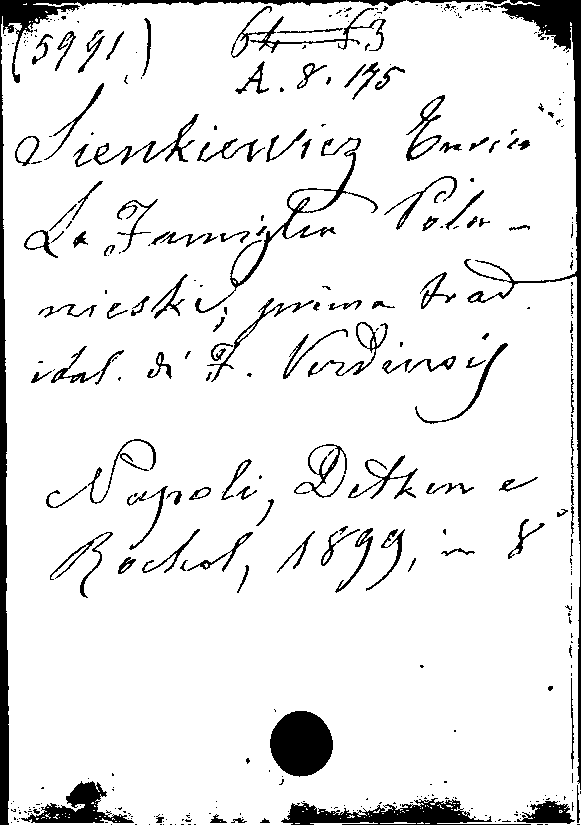 (5991) 64 53
A. 8. 175
Sienkiewicz Enrico
La Famiglia Pola-
nieski; prima trad.
ital. di F. Verdinois
Napoli, Detken e
Rocholl, 1899, in 8°